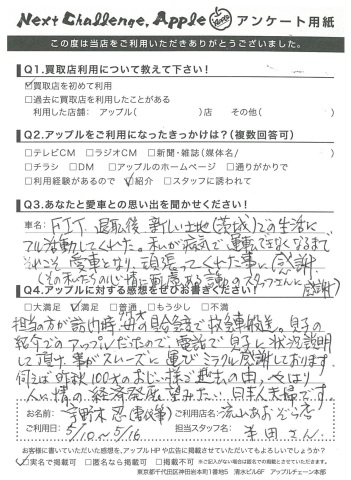 Next Challenge, Apple アンケート用紙
この度は当店をご利用いただきありがとうございました。
Q1.買取店利用について教えて下さい!
☑買取店を初めて利用
□過去に買取店を利用したことがある
利用した店舗: アップル( )店 その他( )
Q2.アップルをご利用になったきっかけは?(複数回答可)
□テレビCM □ラジオCM □新聞・雑誌(媒体名/ )
□チラシ □DM □アップルのホームページ □通りがかりで
□利用経験があるので ☑紹介 □スタッフに誘われて
Q3.あなたと愛車との思い出をお聞かせください!
車名: FIT 退職後 新しい土地(茨城)での生活に
フル活動してくれた。私が病気で運転できなくなるまで
それこそ愛車となり、頑張ってくれた事に感謝
(その私たちの心情に 誠のスタッフさんに感謝)
Q4.アップルに対する感想をぜひお書きください!
□大満足 ☑満足 □普通 □もう少し □不満
担当の方が訪問時 母の具合急変で救急搬送。息子の
紹介でのアップルだったので、電話で息子に状況説明
して頂け 事がスムーズに運びミラクル感謝しております。
何えば昨秋100才のおじい様で逝去の由、やはり
人の情の 経済発展 望みたい 日本人夫婦です。
お名前: 宇野木 忍 ご利用店名: 流山おおたか店
ご利用日: 5/10～5/16 担当スタッフ名: 半田さん
お客様に書いていただいた感想を、アップルHPや広告に掲載させていただいてもよろしいでしょうか?
☑実名で掲載可 □匿名なら掲載可 □掲載不可 ※ご記入がない場合は匿名での掲載とさせていただきます。
東京都千代田区神田岩本町1番地5 清水ビル6F アップルチェーン本部